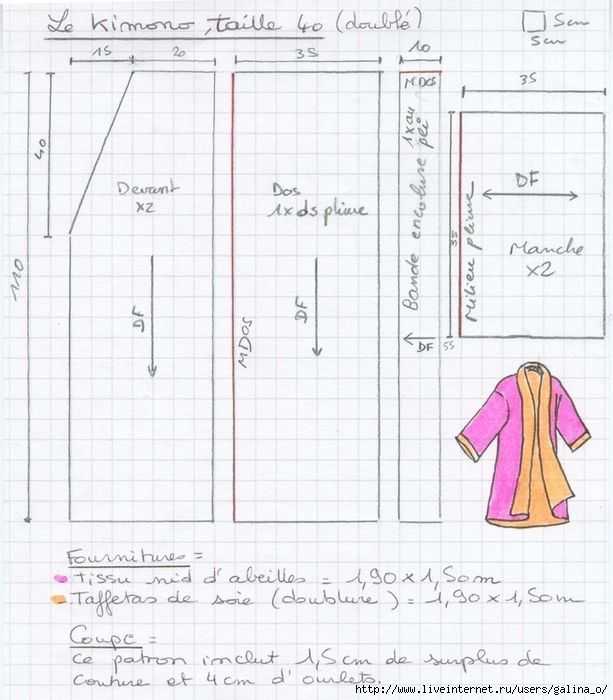 Le kimono, taille 40 (doublé)
5cm
5cm
15
20
35
10
35
40
110
Devant
x2
DF
Dos
1x ds pliure
DF
MDOS
MDOS
Bande encolure 1x au pli
DF
55
35
Milieu pliure
DF
Manche
x2
Fournitures =
tissu nid d'abeilles = 1,90 x 1,50m
Taffetas de soie (doublure) = 1,90 x 1,50m
Coupe =
Ce patron inclut 1,5cm de surplus de
couture et 4cm d'ourlets.
http://www.liveinternet.ru/users/galina_o/